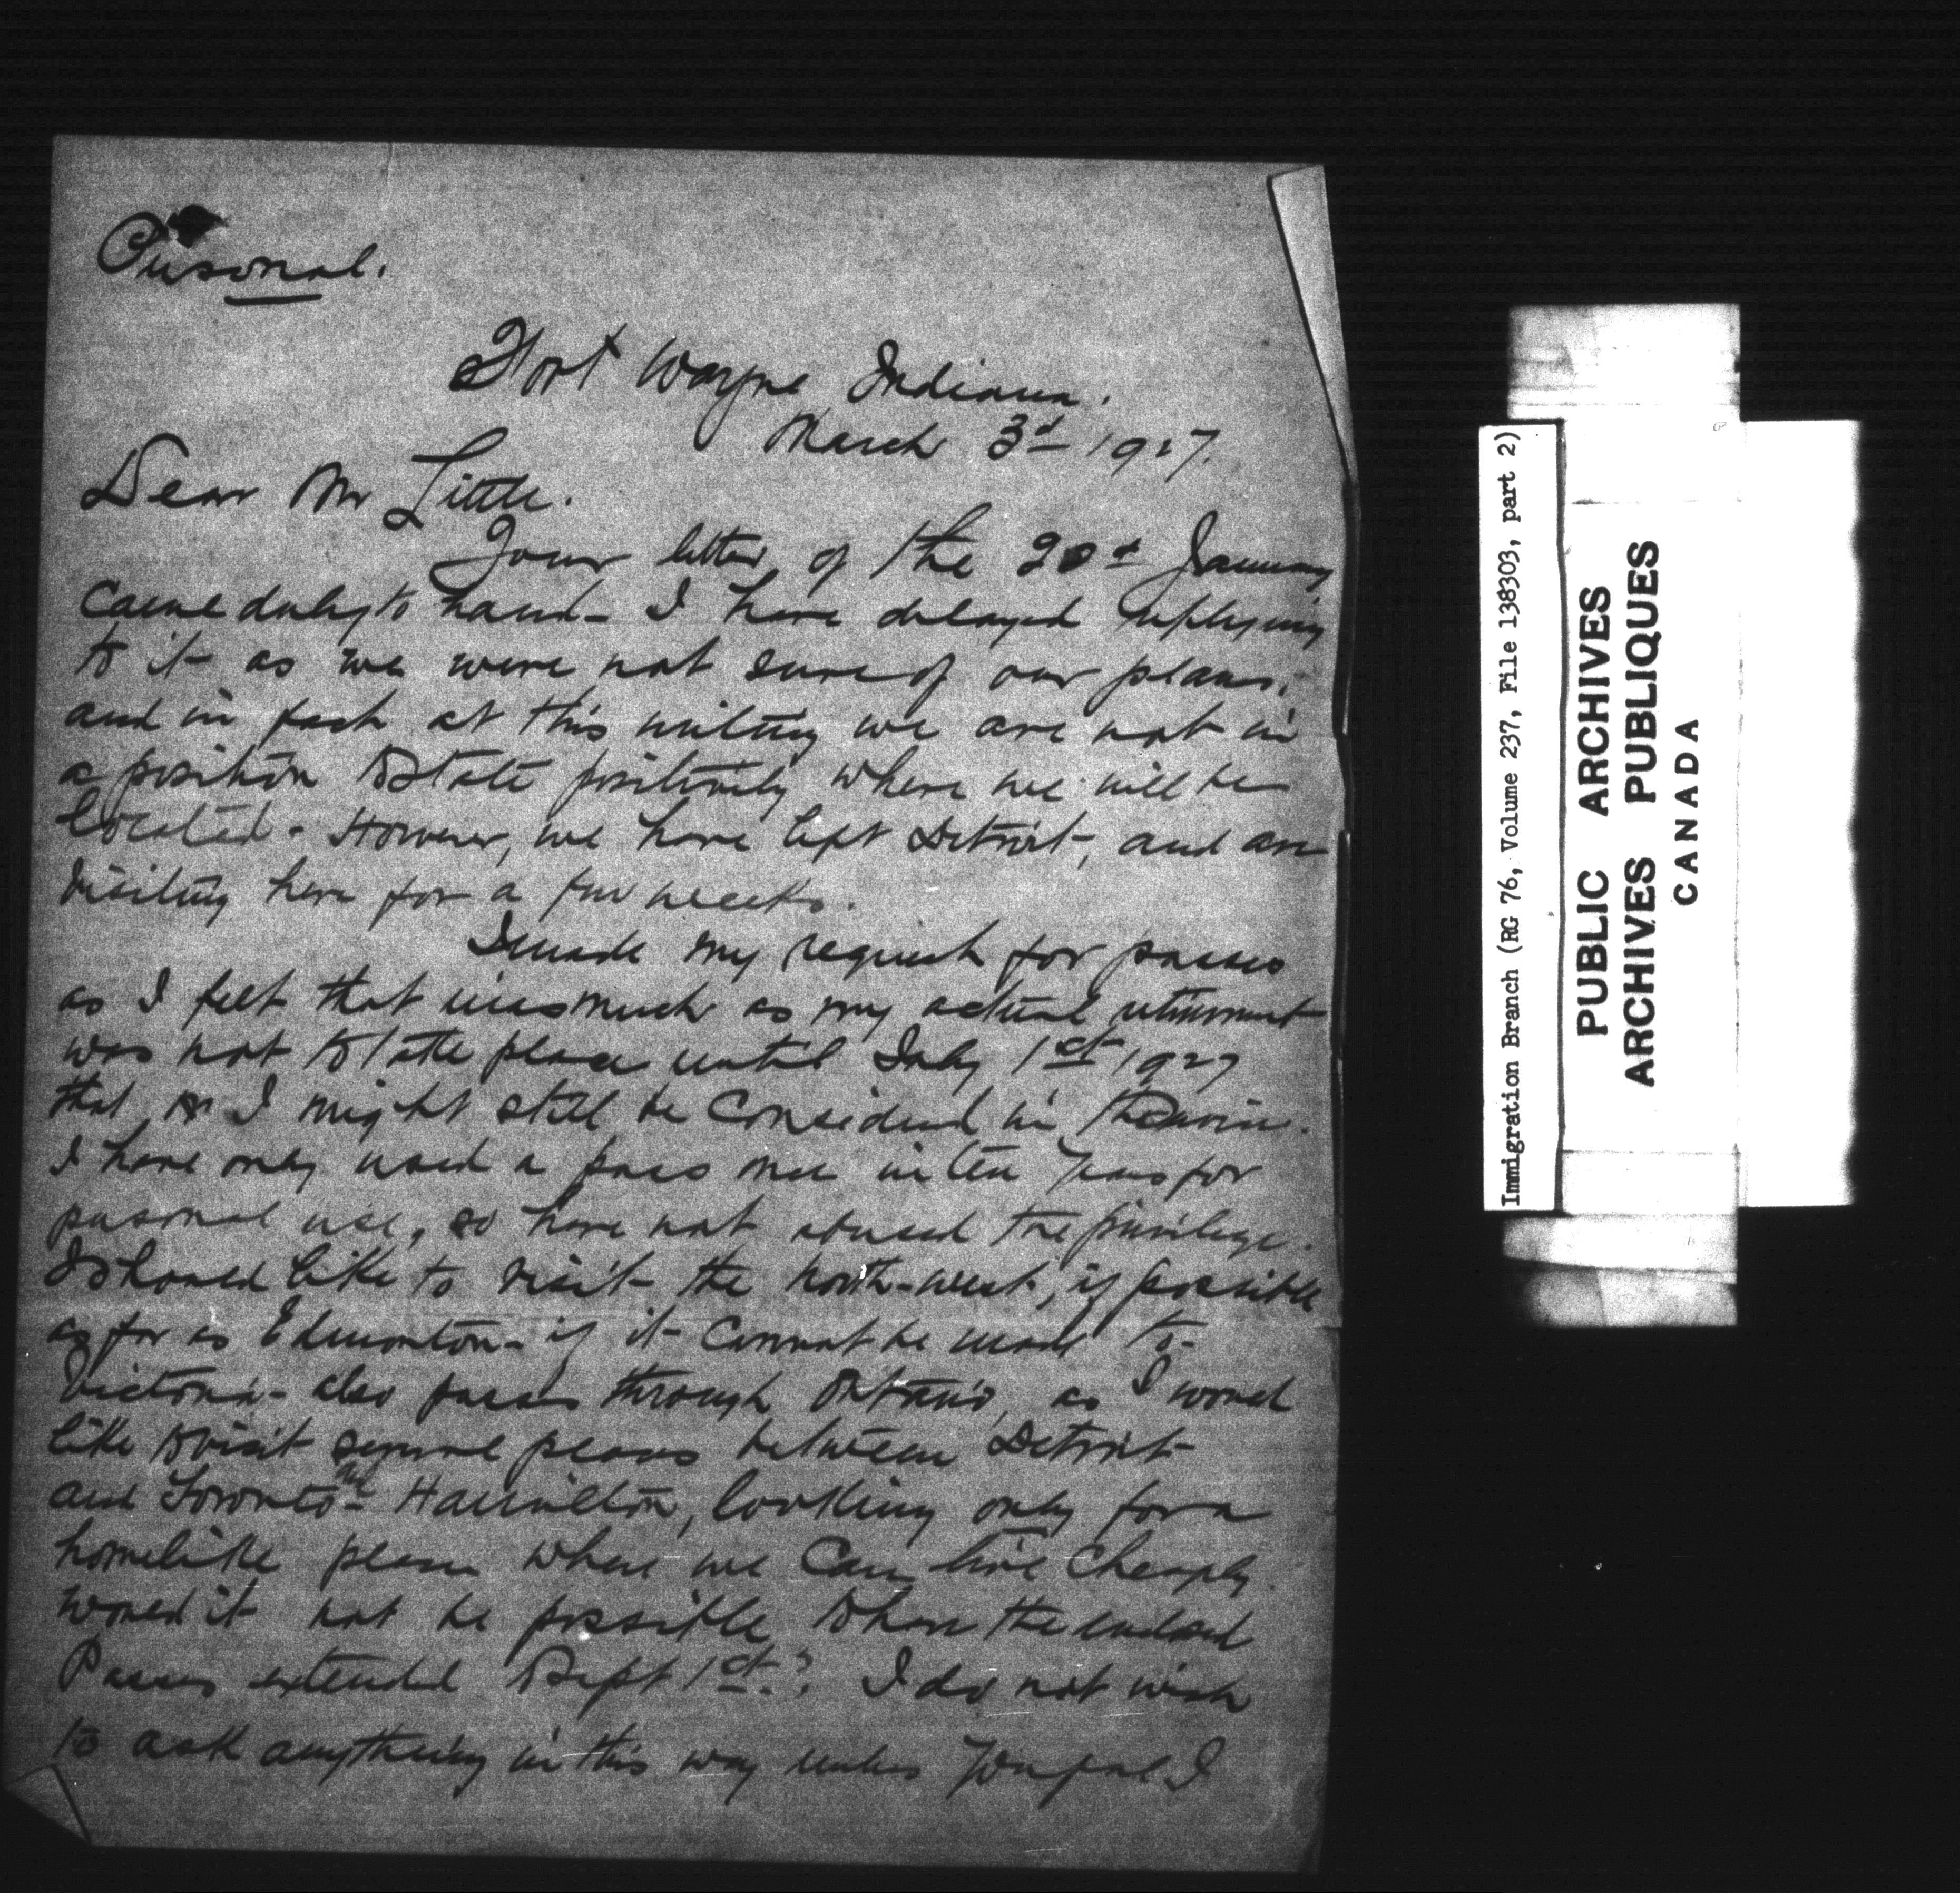 Personal.
Fort Wayne Indiana.
March 3d 1927.
Dear Mr Little.
Your letter of the 20d January
came duly to hand - I have delayed replying
to it as we were not sure of our plans,
and in fact at this writing we are not in
a position to state positively where we will be
located - However, we have left Detroit, and are
visiting here for a few weeks.
I made my request for passes
as I felt that inasmuch as my actual retirement
was not to take place until July 1st 1927
that I might still be considered in the service.
I have only used a pass once in ten years for
personal use, so have not abused the privilege.
I should like to visit the north-west, if possible
as far as Edmonton - if it cannot be made to
Victoria - also passes through Ontario, as I would
like to visit several places between Detroit
and Toronto - Hamilton, looking only for a
homelike place where we can live cheaply.
Would it not be possible to have the
Passes extended to Sept 1st? I do not wish
to ask anything in this way unless you feel I
Immigration Branch (RG 76, Volume 237, File 138303, part 2)
PUBLIC ARCHIVES
ARCHIVES PUBLIQUES
CANADA